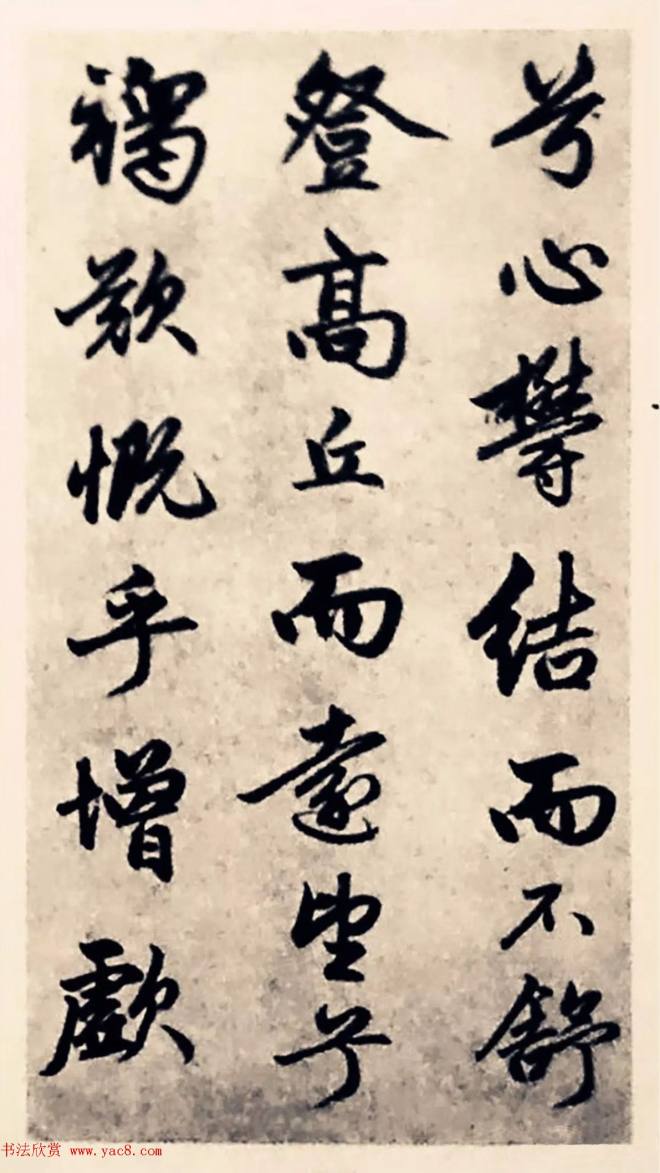 兮心欝結而不舒
登高丘而遠望兮
歎慨乎增歔
书法欣赏 www.yac8.com